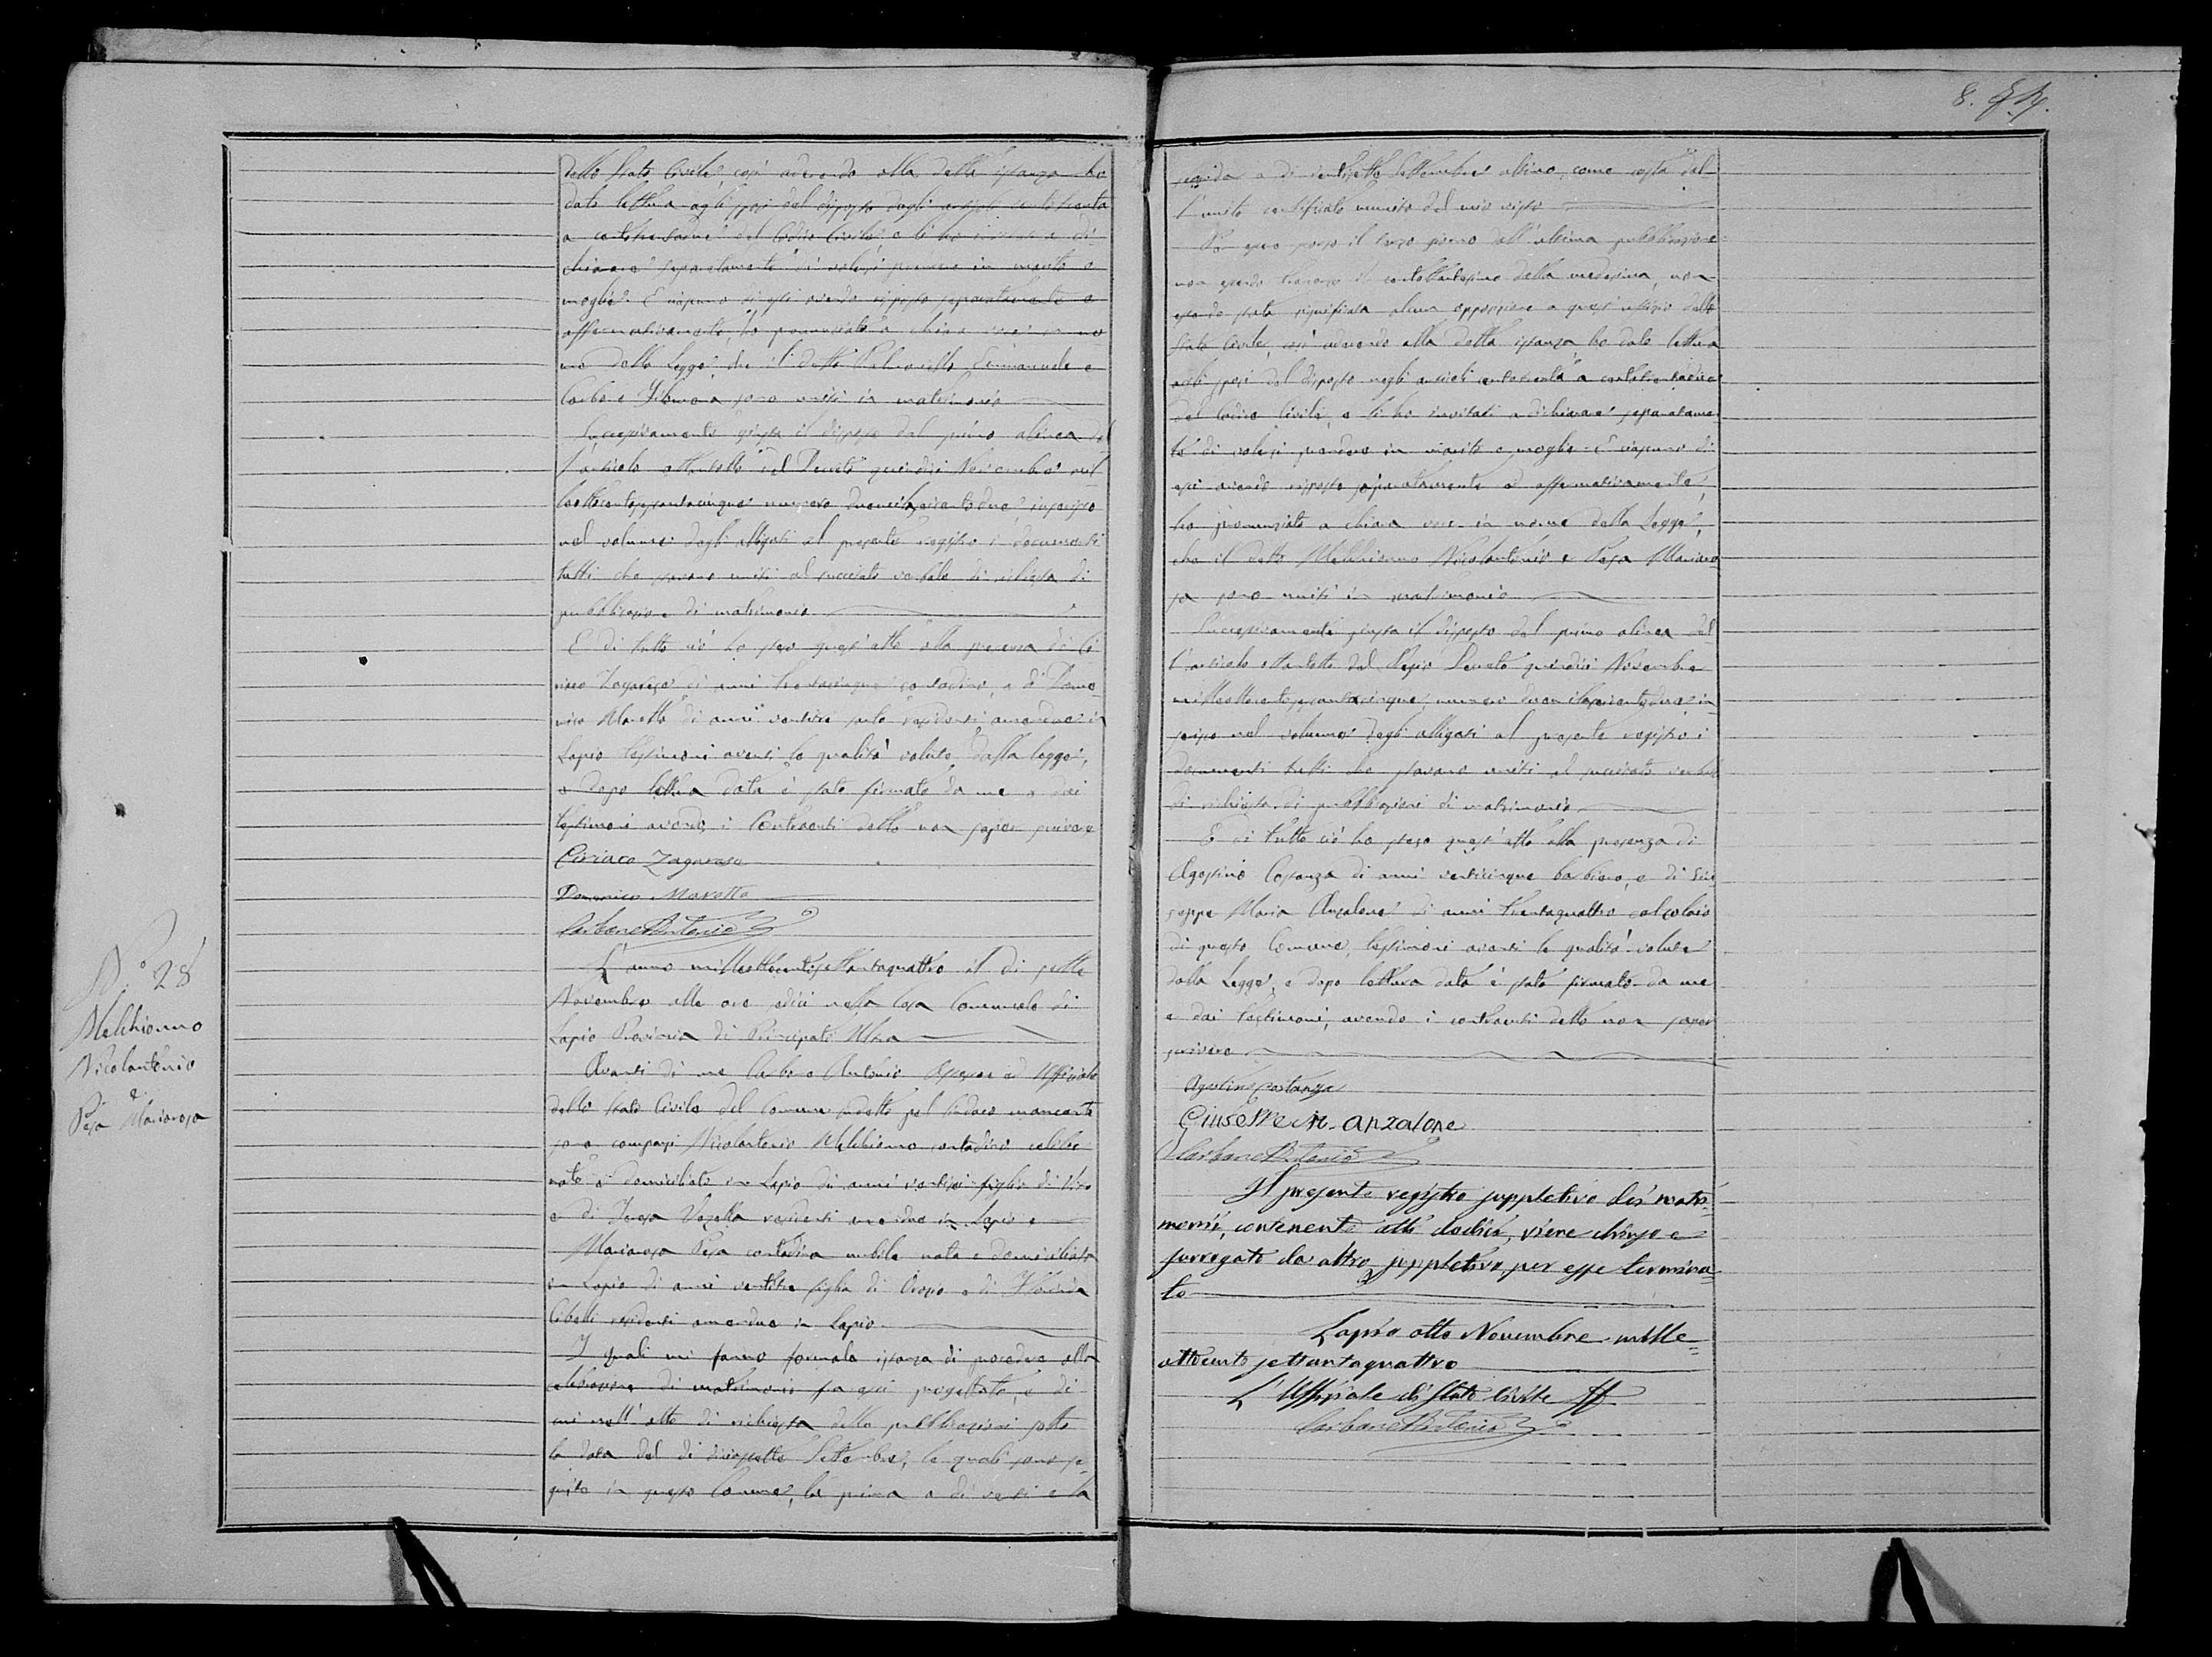 dello Stato Civile, così aderendo alla detta istanza ho
dato lettura agli sposi del disposto degli articoli centotrenta
a centotrentadue del Codice Civile, e li ho invitati a di
chiarare separatamente di volersi prendere in marito e
moglie. E ciascuno di essi avendo risposto separatamente e
affermativamente, ho pronunciato a chiara voce in no
me della Legge, che il detto Emmanuele e
Carbone Filomena sono uniti in matrimonio
Successivamente giusta il disposto dal primo alinea del
l'articolo ottantotto del Decreto quindici Novembre mil
leottocentosessantacinque numero duemilaseicentodue, inserisco
nel volume degli alligati al presente registro i documenti
tutti che stavano uniti al succitato verbale di richiesta di
pubblicazione di matrimonio
E di tutto ciò ho steso quest'atto alla presenza di Ci
riaco Zagarese di anni trentacinque contadino, e di Dome
nico Moretto di anni ventitre residenti amendue in
Lapio testimoni aventi le qualità volute dalla legge,
e dopo lettura data è stato firmato da me e dai
testimoni avendo i Contraenti detto non saper scrivere
Ciriaco Zagarese
Domenico Moretto
Carbone Antonio
N.° 28
Melchionno
Nicolantonio
e
Pesa Mariarosa
L'anno milleottocentosettantaquattro il dì sette
Novembre alle ore sedici nella Casa Comunale di
Lapio Provincia di Principato Ultra
Avanti di me Carbone Antonio Assessore ed Uffiziale
dello Stato Civile del Comune sudetto pel Sindaco mancante
sono comparsi Nicolantonio Melchionno contadino celibe
nato e domiciliato in Lapio di anni figlio di Vito
e di Teresa Vozella residenti amendue in Lapio e
Mariarosa Pesa contadina nubile nata e domiciliata
in Lapio di anni ventitre figlia di e di Florinda
Ciletti residenti amendue in Lapio
I quali mi fanno formale istanza di procedere alla
celebrazione di matrimonio fra essi progettato, e di
cui nell'atto di richiesta delle pubblicazioni sotto
la data del dì diciassette Settembre, le quali sono se
guite in questo Comune, la prima a dì venti e la
8.
seconda a dì ventisette Settembre ultimo, come costa dal
l'unito certificato munito del mio visto
Per essere scorso il terzo giorno dall'ultima pubblicazione
non essendo trascorso il centottantesimo dalla medesima, non
essendo stata significata alcuna opposizione a quest'uffizio dello
Stato Civile, così aderendo alla detta istanza, ho dato lettura
agli sposi del disposto negli articoli centotrenta a centotrentadue
del Codice Civile, e li ho invitati a dichiarare separatamen
te di volersi prendere in marito e moglie. E ciascuno di
essi avendo risposto separatamente ed affermativamente,
ho pronunziato a chiara voce in nome della Legge,
che il detto Melchionno Nicolantonio e Pesa Mariaro
sa sono uniti in matrimonio
Successivamente giusta il disposto dal primo alinea del
l'articolo ottantotto del Regio Decreto quindici Novembre
milleottocentosessantacinque, numero duemilaseicentodue in
serisco nel volume degli alligati al presente registro i
documenti tutti che stavano uniti al succitato verbale
di richiesta di pubblicazioni di matrimonio
E di tutto ciò ho steso quest'atto alla presenza di
Agostino Costanza di anni venticinque barbiere, e di Giu
seppe Maria Anzalone di anni trentaquattro calzolaio
di questo Comune, testimoni aventi le qualità volute
dalla Legge, e dopo lettura data è stato firmato da me
e dai testimoni, avendo i contraenti detto non saper
scrivere
Agostino Costanza
Giuseppe M. Anzalone
Carbone Antonio
Il presente registro suppletivo dei matri=
monii, contenente atti dodici, viene chiuso e
surrogato da altro suppletivo, per esse termina=
to
Lapio otto Novembre mille=
ottocento settantaquattro
L'Uffiziale di Stato Civile ff
Carbone Antonio